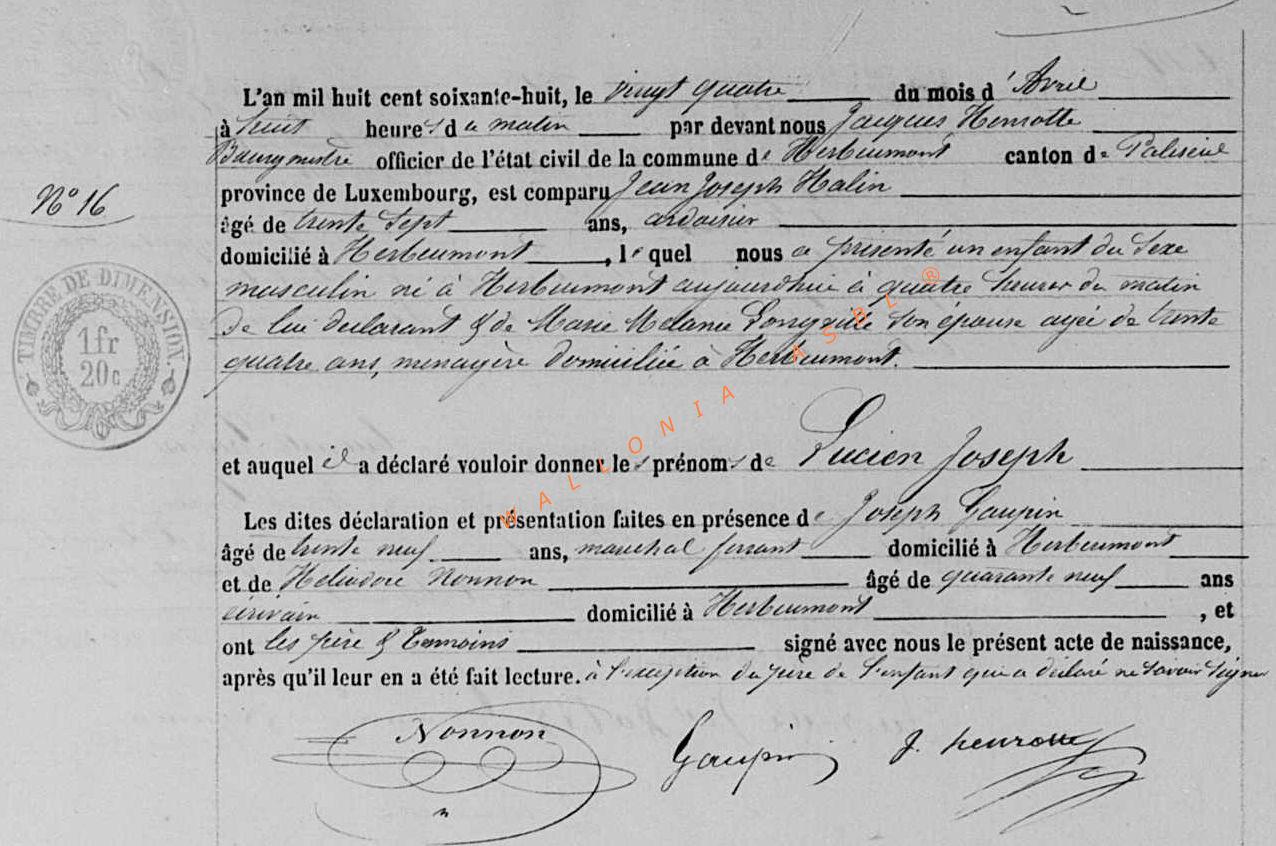 L'an mil huit cent soixante-huit, le vingt quatre du mois d'Avril
à huit heures du matin par devant nous Jacques Henrotte
Bourgmestre officier de l'état civil de la commune de Herbeumont canton de Paliseul
N° 16
province de Luxembourg, est comparu Jean Joseph Halin
âgé de trente sept ans, ardoisier
domicilié à Herbeumont, lequel nous a présenté un enfant du sexe
masculin né à Herbeumont aujourdhui à quatre heures du matin
de lui declarant & de Marie Melanie son épouse agée de trente
quatre ans, menagère domiciliée à Herbeumont.
TIMBRE DE DIMENSION
1 fr
20 c
WALLONIA ASBL ®
et auquel il a déclaré vouloir donner les prénoms de Lucien Joseph
Les dites déclaration et présentation faites en présence de Joseph Gaupin
âgé de trente neuf ans, marechal ferrant domicilié à Herbeumont
et de Heliodore Nonnon âgé de quarante neuf ans
écrivain domicilié à Herbeumont, et
ont les père & temoins signé avec nous le présent acte de naissance,
après qu'il leur en a été fait lecture. à l'exception du père de l'enfant qui a déclaré ne savoir signer
Nonnon Gaupin J. henrotte